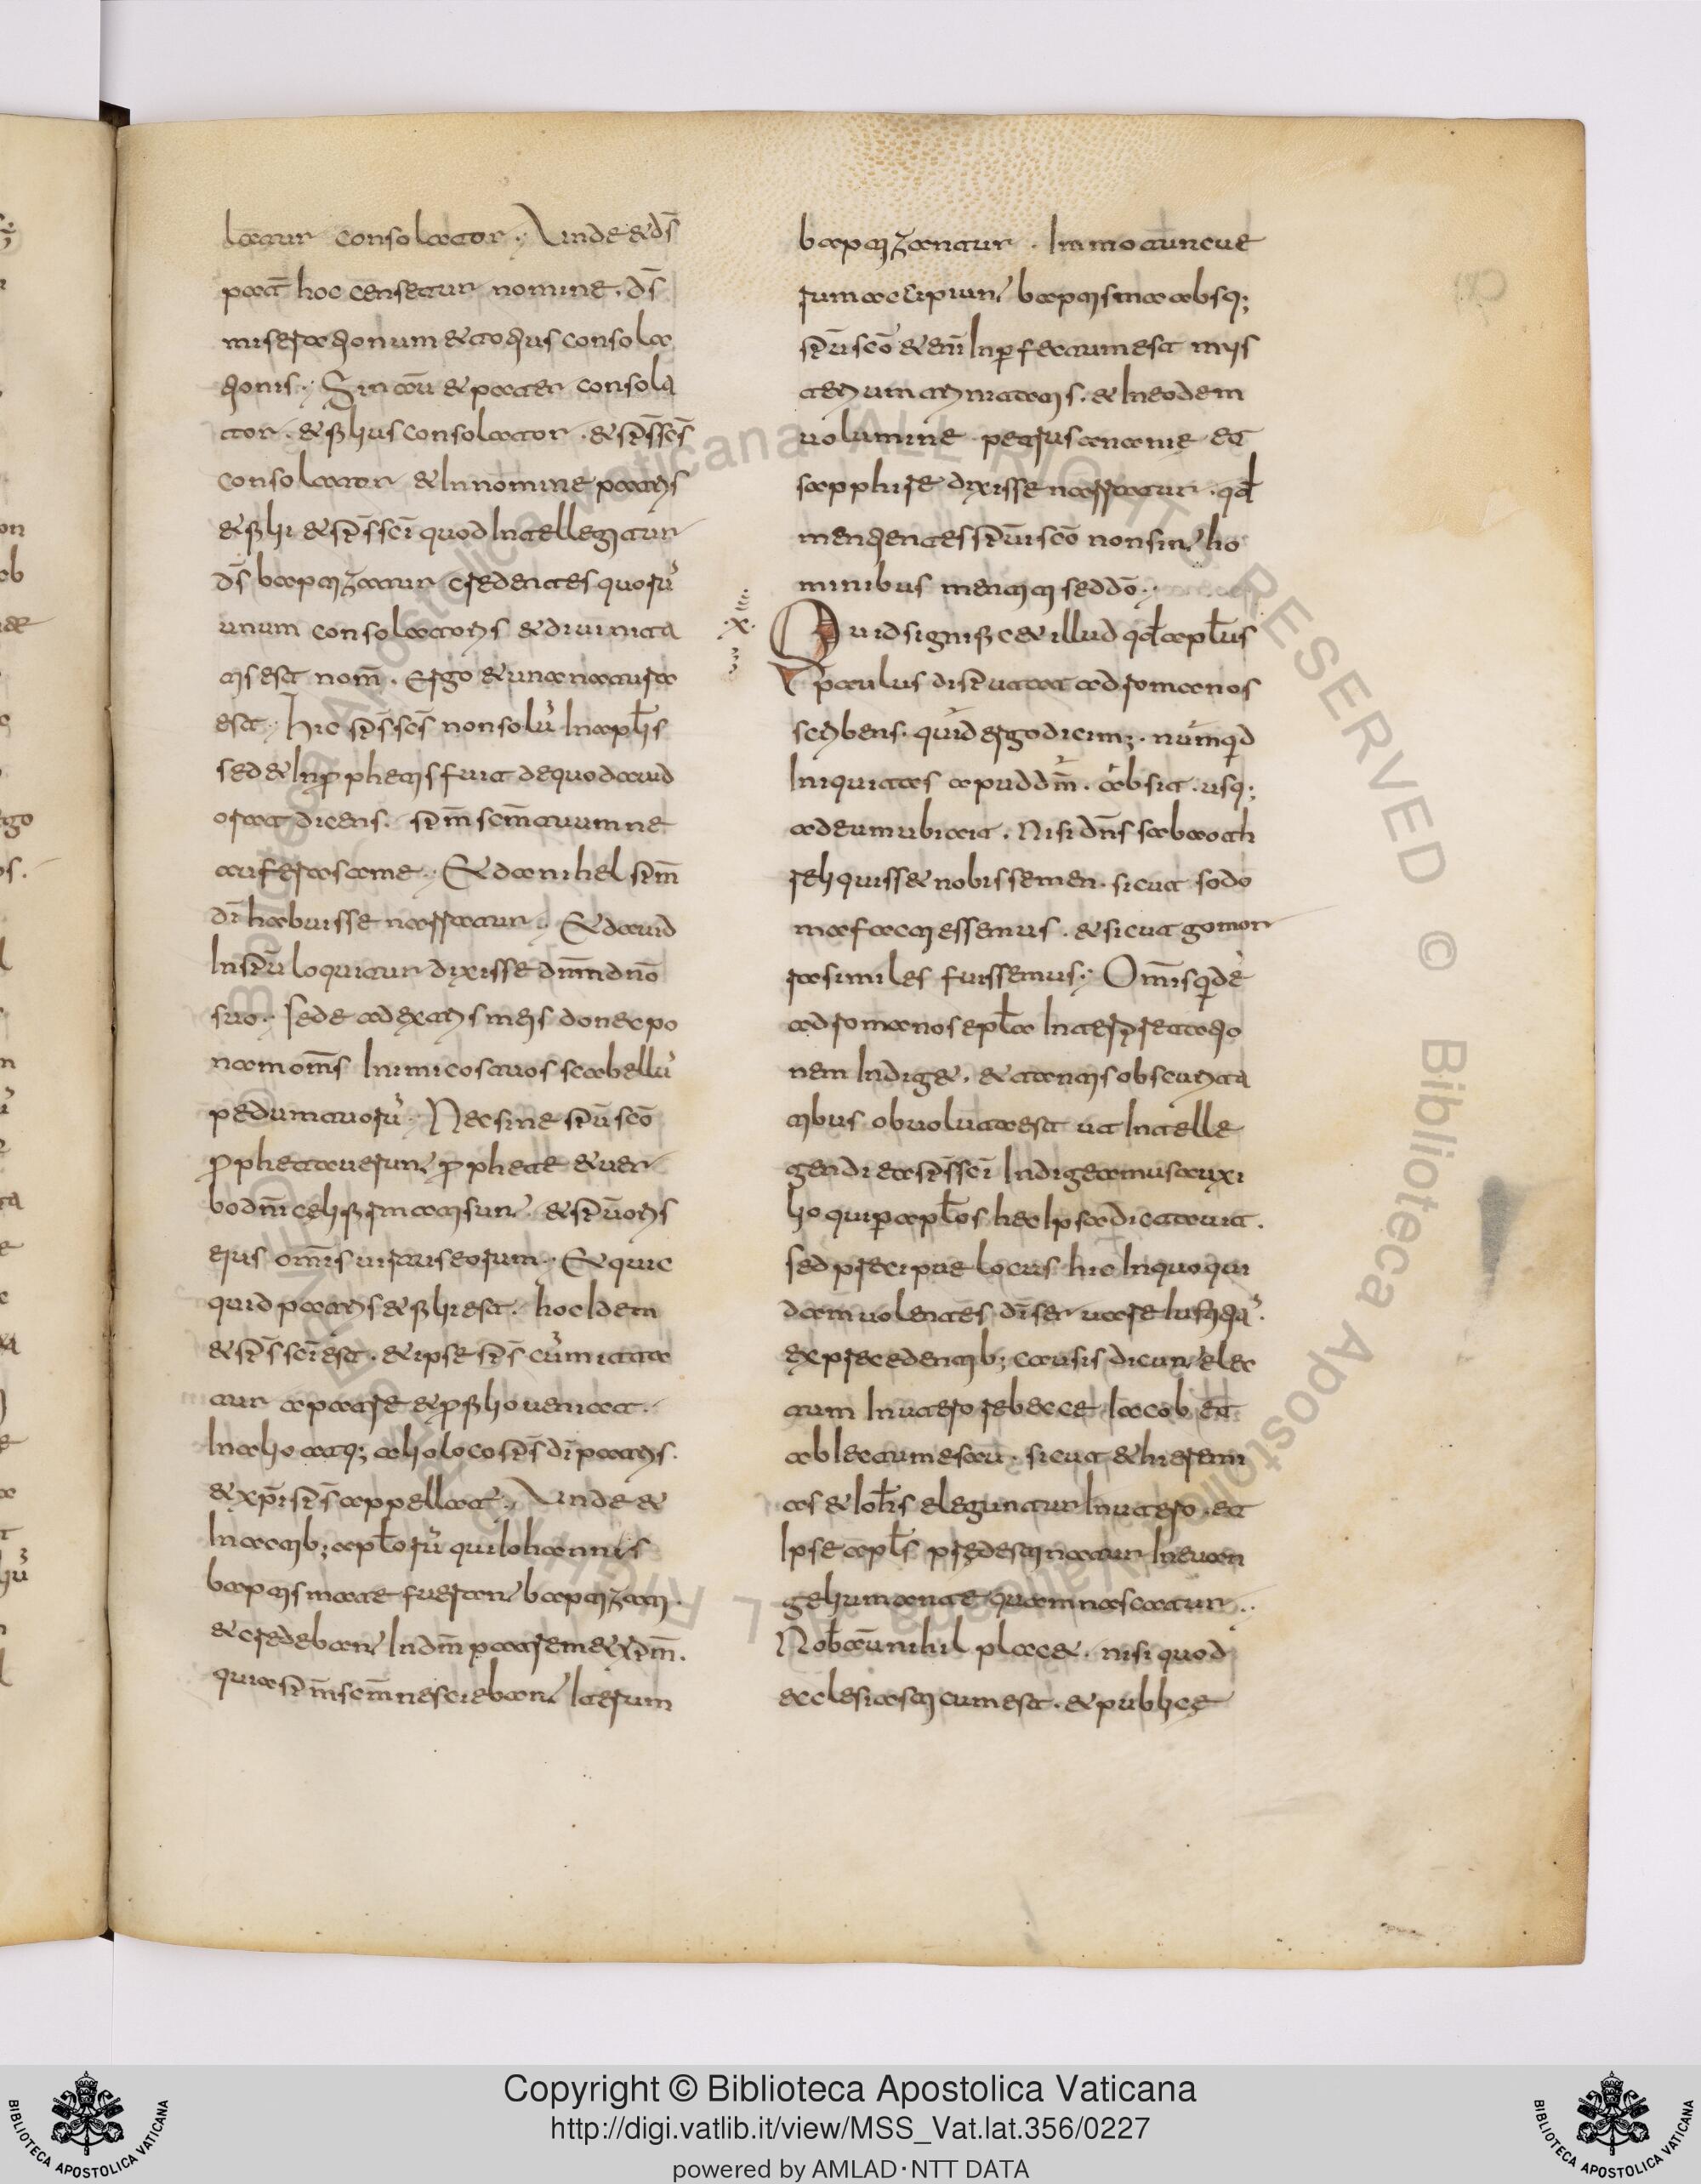 latur consolator. Unde & d̄s
pat̄ hoc censetur nomine. d̄s
miserationum & totius consola
tionis. Sin aū & pater consola
tor. & filius consolator. & sp̄s sc̄s
consolator & In nomine patris
& filii & sp̄s sc̄i quod Intellegitur
d̄s baptizatur credentes quorū
unum consolatoris & divinita
tis est nom̄. Ergo & una natura
est. hic sp̄s sc̄s non solū In apł̄is
sed & In p̄phetis fuit de quo david
orat dicens. sp̄m sc̄m tuum ne
auferas a me. Et danihel sp̄m
d̄i habuisse narratur. Et david
In sp̄u loquitur dixisse dn̄m dn̄o
suo. Sede ad extris meis donec po
nam om̄s Inimicos tuos scabellū
pedum tuorū. Nec sine sp̄u sc̄o
p̄phetauerun̄ p̄phetę & uer
bo dn̄i cęli firmati sun̄. & sp̄u oris
eius om̄is uirtus eorum. Et quic
quid patris & filii est. hoc Idem
& sp̄s sc̄i est. & ipse sp̄s cū mitta
tur a patre & p̄ filio ueniat.
In alio atq; alio loco sp̄s d̄i patris.
& xp̄i sp̄s appellat̄. Unde &
In actib; apł̄orū qui Iohannis
baptismate fueran̄ baptizati.
& credeban̄ In dm̄ patrem & xp̄m.
quia sp̄m sc̄m nescieban̄ Iterum
baptizantur. Immo tunc ue
rum accipiun̄ baptisma absq;
sp̄u sc̄o & eni Inp̄fectum est mys
terium trinitatis. & In eodem
uolumine petrus ananie et
sapphire dixisse narratur. qd̄
mentientes sp̄ui sc̄o non sin̄ ho
minibus mentiti sed dō.
·X·
Quid significe& illud qd̄ apł̄us
paulus disputat ad romanos
scribens. quid ergo dicim;. numqd̄
Iniquitas apud dm̄. absit. usq;
ad eum ubi ait. Nisi dn̄s sabaoth
reliquisset nobis semen. sicut sodo
ma facti essemus. & sicut gomor
ra similes fuissemus. Om̄is qde
ad romanos epł̄a Interp̄retatio
nem Indig&. & tantis obscurita
tibus obuoluta est ut Intelle
gendi ea sp̄s sc̄i Indigeamus auxi
lio qui p̄ apł̄os hec Ipsa dictauit.
Sed precipue locus hic In quo qui
dam uolentes d̄i ser uare Iustitiā.
ex precedentib; causis dicun̄ elec
tum In utero rebecce Iacob et
ablectum esau. sicut & hieremi
as & Ioh̄s eleguntur In utero. et
Ipse apł̄s prędestinatur In euan
gelium ante quam nascatur.
Nob̄ aū nihil plac&. nisi quod
ecclesiasticum est. & publicę